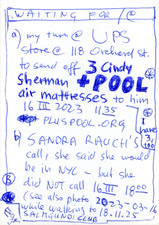 WAITING FOR /
a) my turn @ UPS
store @ 118 Orchard St.
to send off 3 Cindy
Sherman + POOL
air mattresses to him
16 III 2023 11 35
PLUSPOOL.ORG
I
have
3,
b) SANDRA RAUCH'S
call, she said she would
be in NYC - but she
did NOT CALL 16 III 18 00
(See also photo 2023-03-16
while walking to 18.11.25
SALMGUNDI CLUB